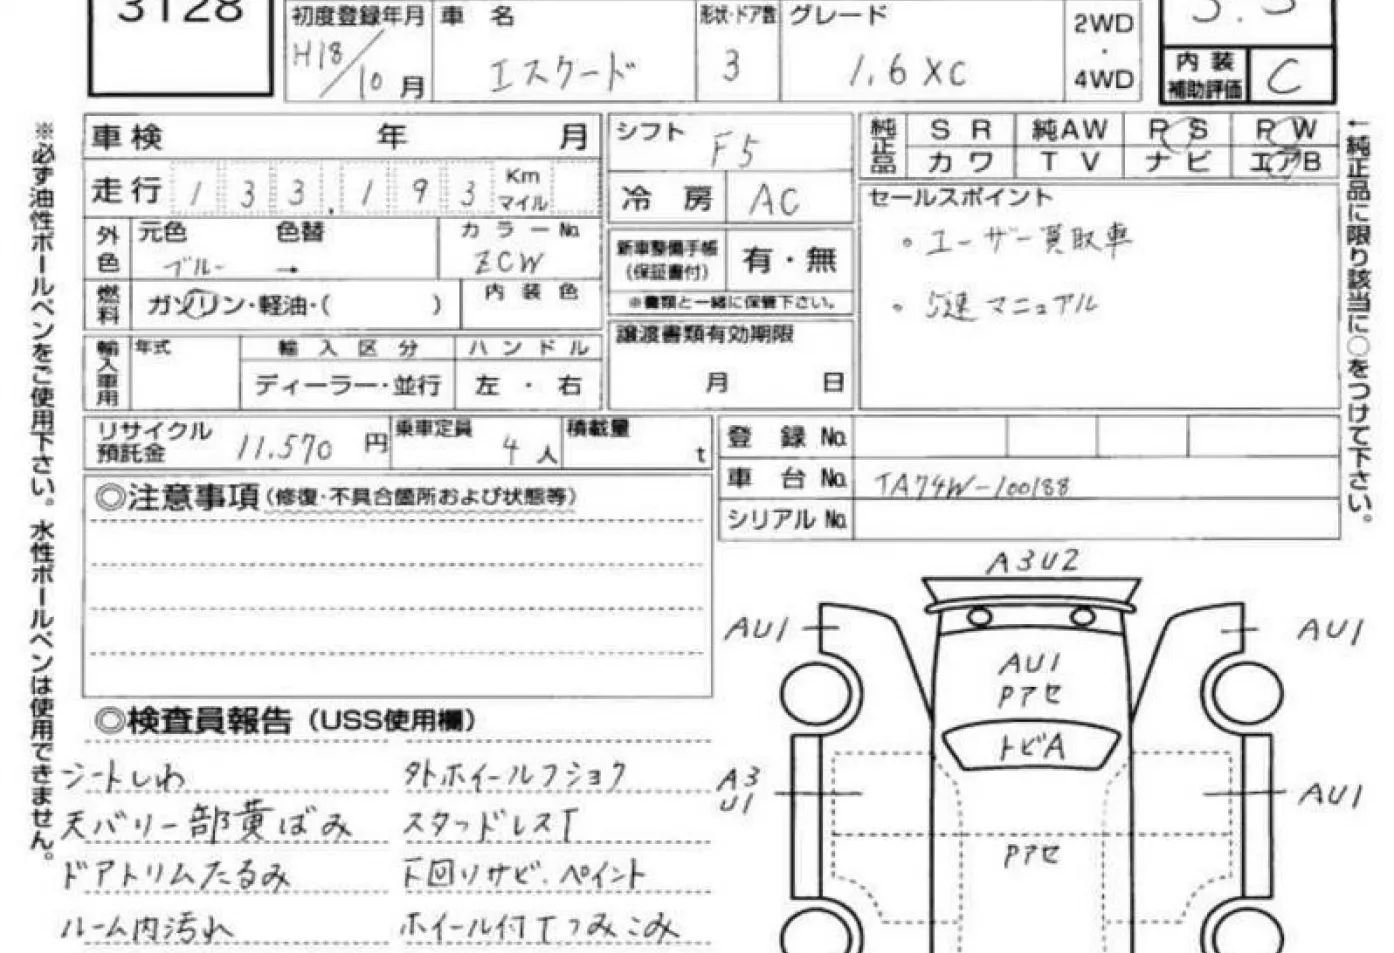 3128
初度登録年月 車名 形状・ドア数 グレード 2WD・4WD
H18/10月 エスクード 3 1.6 XC
内装補助評価 C
車検 年 月
走行 133,193 Km マイル
外色 元色 色替 カラーNo.
ブルー → ZCW
燃料 ガソリン・軽油・( ) 内装色
輸入車用 年式 輸入区分 ハンドル
ディーラー・並行 左・右
シフト F5
冷房 AC
新車整備手帳(保証書付) 有・無
※書類と一緒に保管下さい。
譲渡書類有効期限
月 日
純正品 SR 純AW PS PW
カワ TV ナビ エアB
セールスポイント
。ユーザー買取車
。5速マニュアル
リサイクル預託金 11,570円 乗車定員 4人 積載量 t
登録No.
車台No. TA74W-100188
シリアルNo.
◎注意事項(修復・不具合箇所および状態等)
◎検査員報告(USS使用欄)
シートしわ
天バリ一部黄ばみ
ドアトリムたるみ
ルーム内汚れ
外ホイールフショク
スタッドレスT
下回りサビ、ペイント
ホイール付Tつみこみ
A3U2
AU1 AU1
AU1
Pアセ
トビA
A3
U1 AU1
Pアセ
※必ず油性ボールペンをご使用下さい。水性ボールペンは使用できません。
←純正品に限り該当に○をつけて下さい。